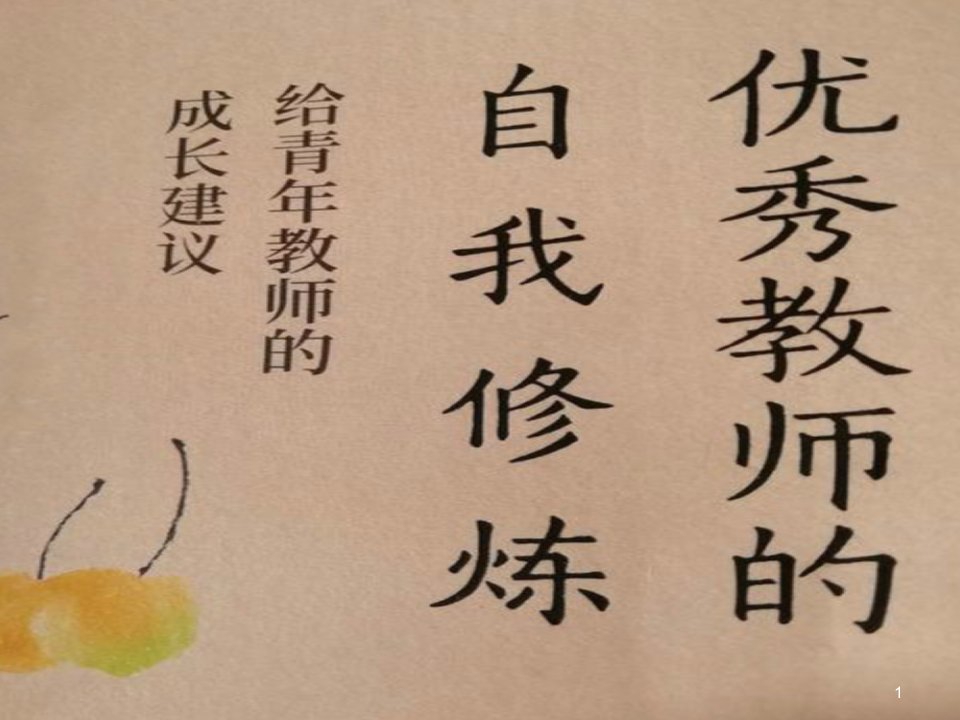 优秀教师的
自我修炼
给青年教师的
成长建议
1